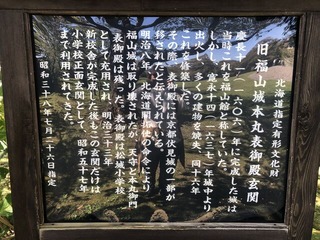 北海道指定有形文化財
旧福山城本丸表御殿玄関
慶長十一(一六〇六)年に完成した城は
当時これを福山館と称していた。
しかし、寛永十四(一六三七)年城中より
出火し、多くの建物を焼失、同十六年
これを修築した。
その際、表御殿は京都伏見城の一部が
移されたと伝えられている。
明治八年、北海道開拓使の命令により
福山城は取り壊されたが、天守と本丸御門
表御殿は残った。表御殿は松城小学校
として充用され、明治三十三年
新校舎が完成した後もこの玄関だけは
小学校正面玄関として、昭和五十七年
まで利用されてきた。
昭和三十八年七月二十六日指定